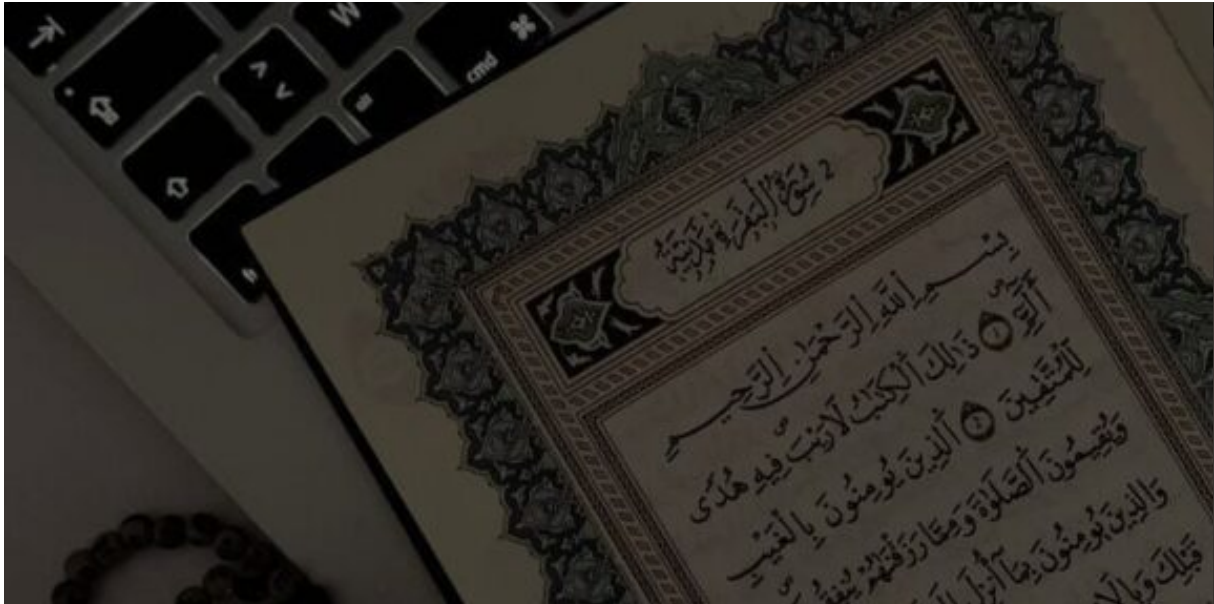 W
⌘
cmd
alt
2 سُورَةُ الْبَقَرَةِ مَدَنِيَّةٌ
بِسْمِ اللَّهِ الرَّحْمَٰنِ الرَّحِيمِ
الٓمٓ ۝١ ذَٰلِكَ الْكِتَٰبُ لَا رَيْبَ ۛ فِيهِ ۛ هُدًى
لِّلْمُتَّقِينَ ۝٢ الَّذِينَ يُؤْمِنُونَ بِالْغَيْبِ
وَيُقِيمُونَ الصَّلَوٰةَ وَمِمَّا رَزَقْنَٰهُمْ
وَالَّذِينَ يُؤْمِنُونَ بِمَآ أُنزِلَ
قَبْلِكَ